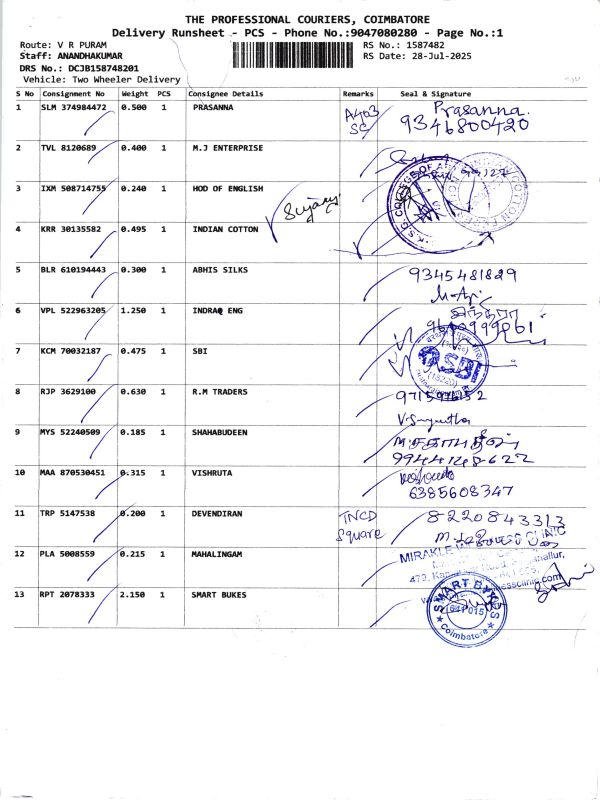 THE PROFESSIONAL COURIERS, COIMBATORE
Delivery Runsheet - PCS - Phone No.:9047080280 - Page No.:1
Route: V R PURAM
RS No.: 1587482
Staff: ANANDHAKUMAR
RS Date: 28-Jul-2025
DRS No.: DCJB158748201
Vehicle: Two Wheeler Delivery
S No Consignment No Weight PCS Consignee Details Remarks Seal & Signature
1 SLM 374984472 0.500 1 PRASANNA A403 SC Prasanna.
9346800420
2 TVL 8120689 0.400 1 M.J ENTERPRISE
3 IXM 508714755 0.240 1 HOD OF ENGLISH
4 KRR 30135582 0.495 1 INDIAN COTTON
5 BLR 610194443 0.300 1 ABHIS SILKS 9345481829
6 VPL 522963205 1.250 1 INDRAQ ENG
7 KCM 70032187 0.475 1 SBI SBI
8 RJP 3629100 0.630 1 R.M TRADERS
9 MYS 52240509 0.185 1 SHAHABUDEEN
10 MAA 870530451 0.315 1 VISHRUTA
6385608347
11 TRP 5147538 0.200 1 DEVENDIRAN TNCD Square 8220843313
12 PLA 5008559 0.215 1 MAHALINGAM MIRAKLE CLINIC
13 RPT 2078333 2.150 1 SMART BUKES SMART BYKES
Coimbatore